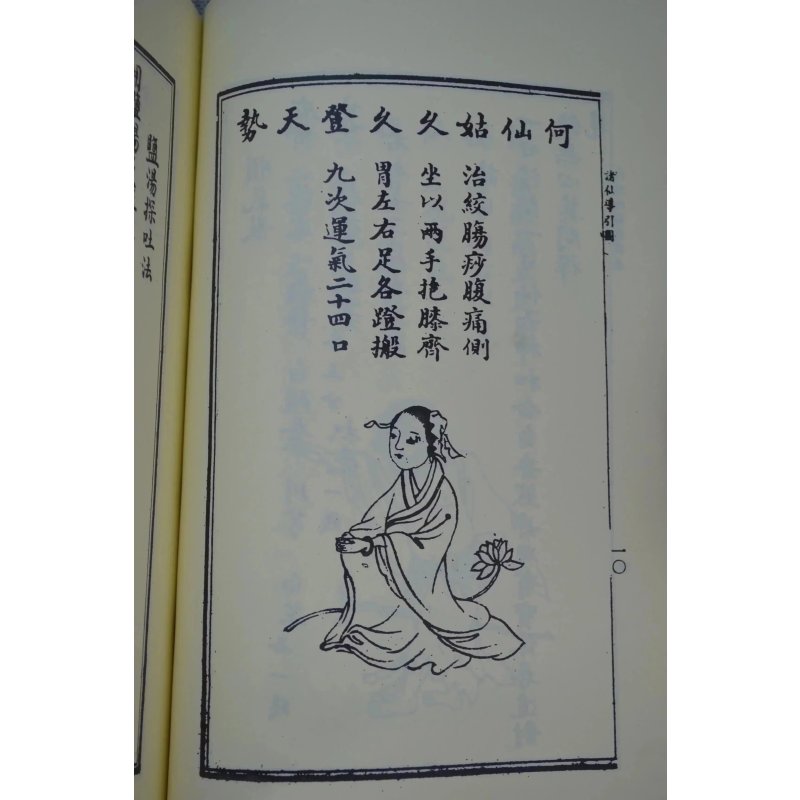 何仙姑久久登天勢
治絞膓痧腹痛側
坐以兩手抱膝齊
胷左右足各蹬搬
九次運氣二十四口
諸仙導引圖
一〇
鹽湯探吐法